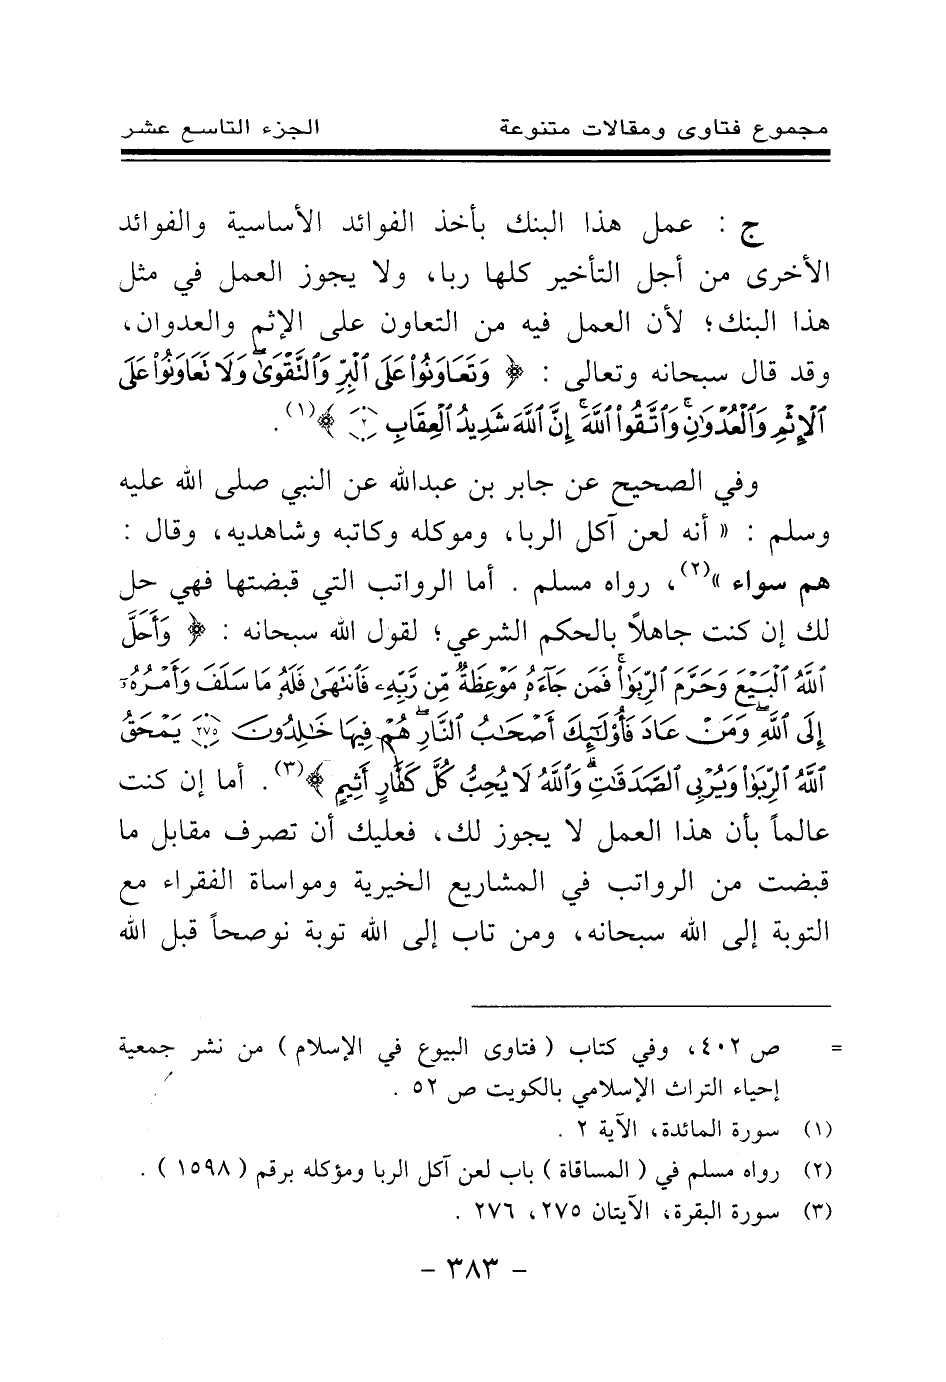 مجموع فتاوى ومقالات متنوعة الجزء التاسع عشر
ج : عمل هذا البنك بأخذ الفوائد الأساسية والفوائد
الأخرى من أجل التأخير كلها ربا، ولا يجوز العمل في مثل
هذا البنك؛ لأن العمل فيه من التعاون على الإثم والعدوان،
وقد قال سبحانه وتعالى : ﴿ وَتَعَاوَنُوا۟ عَلَى ٱلْبِرِّ وَٱلتَّقْوَىٰ ۖ وَلَا تَعَاوَنُوا۟ عَلَى
ٱلْإِثْمِ وَٱلْعُدْوَٰنِ ۚ وَٱتَّقُوا۟ ٱللَّهَ ۖ إِنَّ ٱللَّهَ شَدِيدُ ٱلْعِقَابِ ٢ ﴾(١).
وفي الصحيح عن جابر بن عبدالله عن النبي صلى الله عليه
وسلم : « أنه لعن آكل الربا، وموكله وكاتبه وشاهديه، وقال :
هم سواء »(٢)، رواه مسلم . أما الرواتب التي قبضتها فهي حل
لك إن كنت جاهلاً بالحكم الشرعي؛ لقول الله سبحانه : ﴿ وَأَحَلَّ
ٱللَّهُ ٱلْبَيْعَ وَحَرَّمَ ٱلرِّبَوٰا۟ ۚ فَمَن جَآءَهُۥ مَوْعِظَةٌ مِّن رَّبِّهِۦ فَٱنتَهَىٰ فَلَهُۥ مَا سَلَفَ وَأَمْرُهُۥٓ
إِلَى ٱللَّهِ ۖ وَمَنْ عَادَ فَأُو۟لَٰٓئِكَ أَصْحَٰبُ ٱلنَّارِ ۖ هُمْ فِيهَا خَٰلِدُونَ ٢٧٥ يَمْحَقُ
ٱللَّهُ ٱلرِّبَوٰا۟ وَيُرْبِى ٱلصَّدَقَٰتِ ۗ وَٱللَّهُ لَا يُحِبُّ كُلَّ كَفَّارٍ أَثِيمٍ ﴾(٣). أما إن كنت
عالماً بأن هذا العمل لا يجوز لك، فعليك أن تصرف مقابل ما
قبضت من الرواتب في المشاريع الخيرية ومواساة الفقراء مع
التوبة إلى الله سبحانه، ومن تاب إلى الله توبة نوصحاً قبل الله
= ص ٤٠٢، وفي كتاب ( فتاوى البيوع في الإسلام ) من نشر جمعية
إحياء التراث الإسلامي بالكويت ص ٥٢ .
(١) سورة المائدة، الآية ٢ .
(٢) رواه مسلم في ( المساقاة ) باب لعن آكل الربا ومؤكله برقم ( ١٥٩٨ ) .
(٣) سورة البقرة، الآيتان ٢٧٥، ٢٧٦ .
- ٣٨٣ -